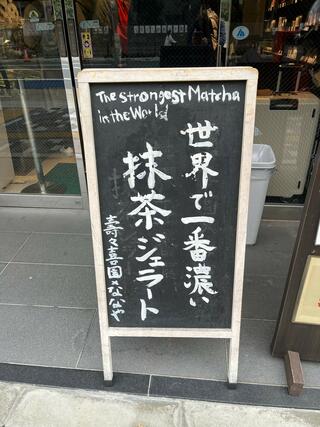 The strongest Matcha
in the World
世界で一番濃い
抹茶ジェラート
壽々喜園×ななや